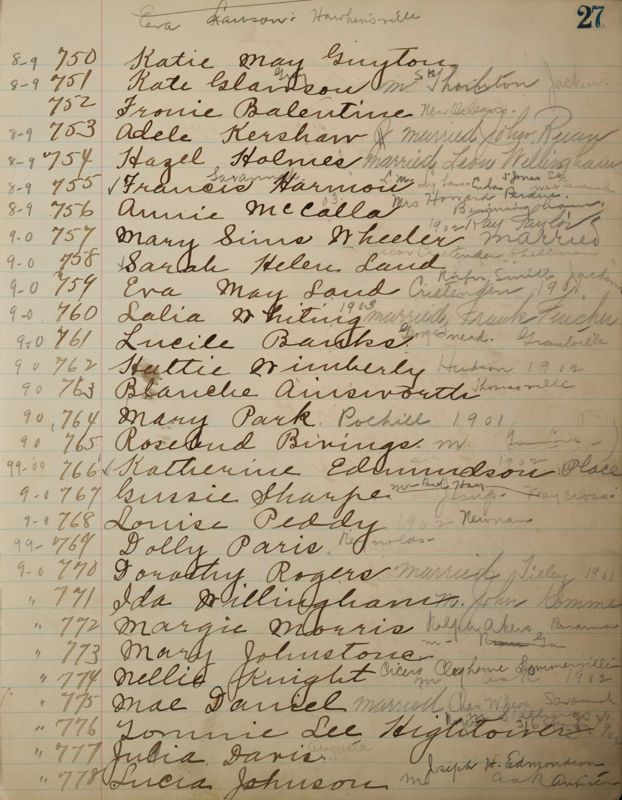 Eva Lawson: Hawkinsville 27
8-9 750 Katie May Guyton
8-9 751 Kate Glawson m Thornton Jackson
752 Fronie Balentine New Orleans.
8-9 753 Adele Kershaw married Jno. Ruan
8-9 754 Hazel Holmes married Leon Willingham
8-9 755 Francis Harmon Savannah
8-9 756 Annie McCalla Mrs Howard Perdue
9-0 757 Mary Sims Wheeler married Ray Taylor 1902
9-0 758 Sarah Helen Land Crittenden Shellman
9-0 759 Eva May Land Crittenden 1901 Rufus Smith
9-0 760 Lalia Whiting 1903 married Frank Fincher
9-0 761 Lucile Banks Grantville
9-0 762 Hattie Wimberly Hudson 1902
90 763 Blanche Ainsworth Thomasville
90 764 Mary Park 1901
90 765 Rosebud Bivings m.
99-00 766 Katherine Edmundson 1902 Place
9-0 767 Gussie Sharpe Jesup Waycross
9-0 768 Louise Peddy 1902 Newnan
99- 769 Dolly Paris Reynolds
9-0 770 Dorothy Rogers married Tilley 1901
" 771 Ida Willingham m. John
" 772 Margie Morris Ralph Akers
" 773 Mary Johnstone m- Ga
" 774 Nellie Knight Cicero Cleghorne Sommerville m 1902
" 775 Mae Daniel married Chas Wilson Savannah
" 776 Tommie Lee Hightower
" 777 Julia Davis. Augusta
" 778 Lucia Johnson m Joseph H. Edmondson Anniston